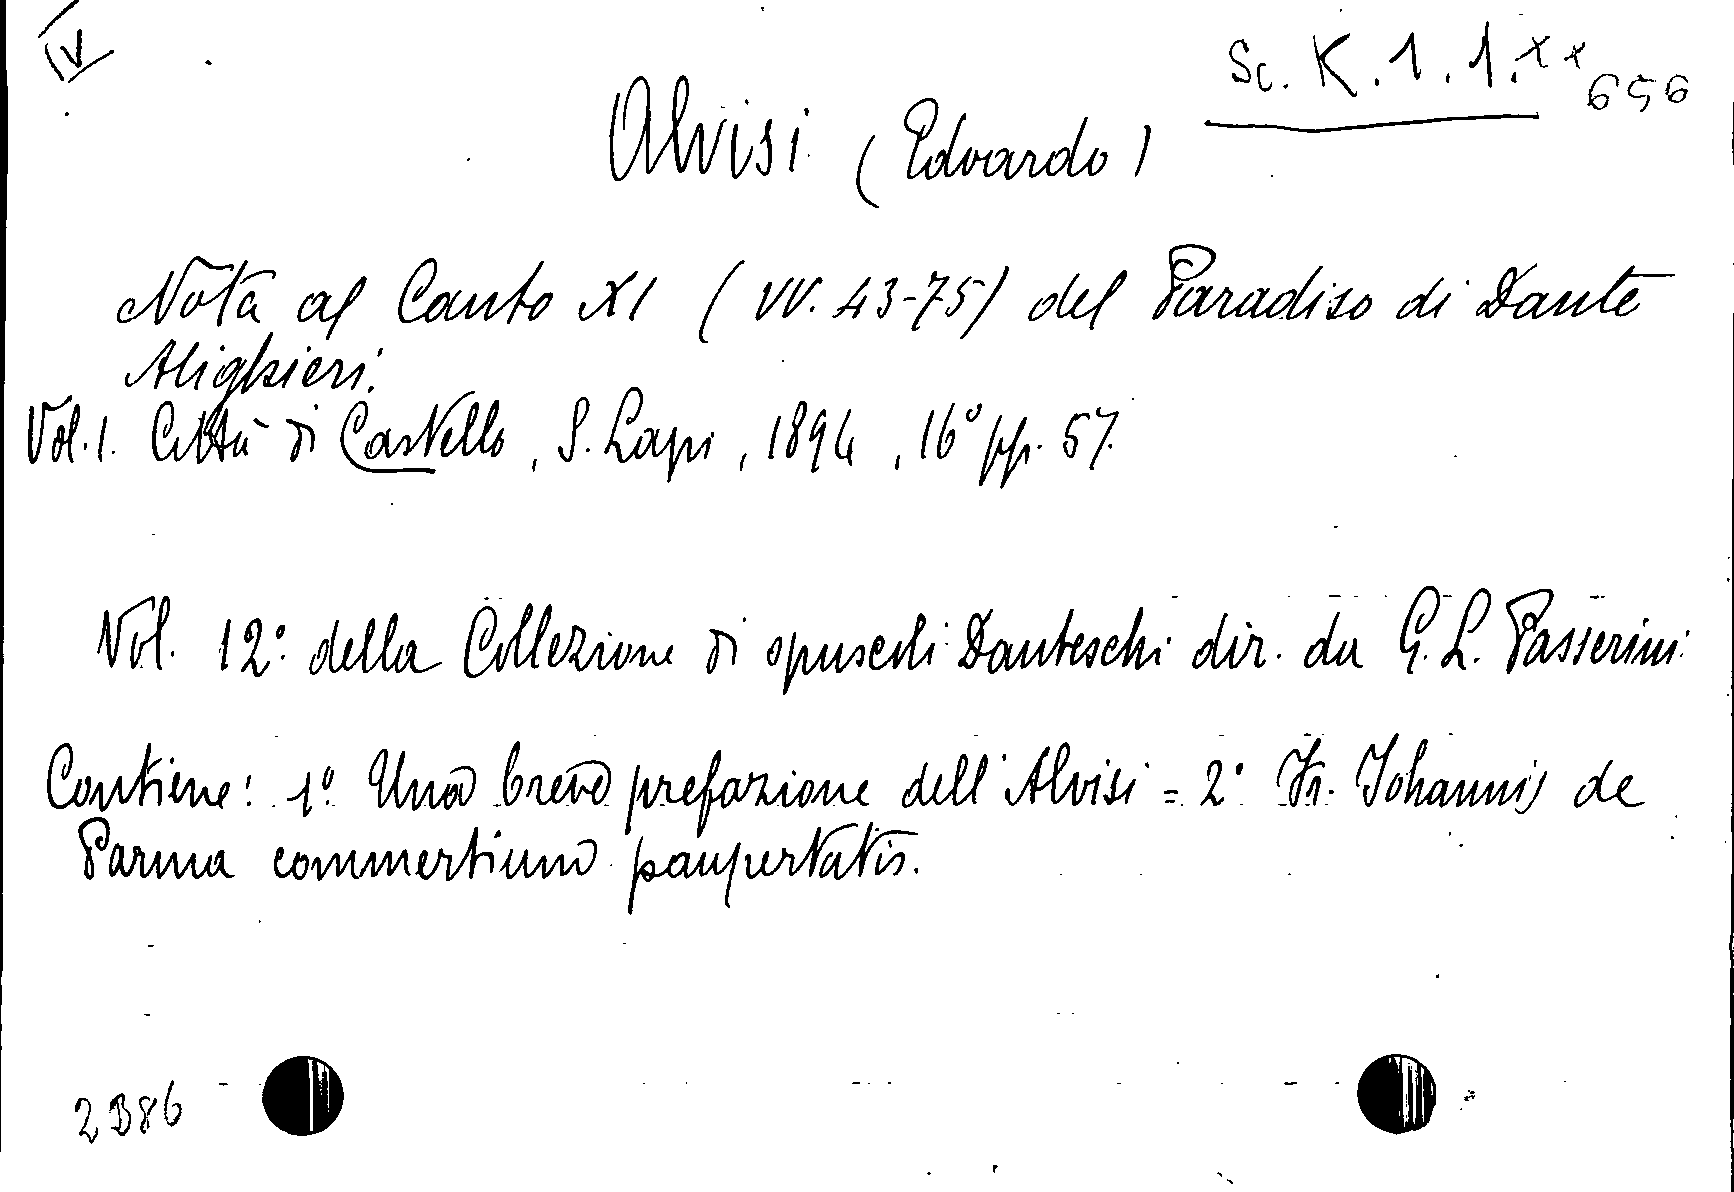 IV
Sc. K. 1. 1. xx
656
Alvisi (Edoardo)
Nota al Canto XI (vv. 43-75) del Paradiso di Dante
Alighieri.
Vol. 1. Città di Castello, S. Lapi, 1894, 16° pp. 57.
Vol. 12° della Collezione di opuscoli Danteschi dir. da G. L. Passerini.
Contiene: 1° Una breve prefazione dell'Alvisi = 2° Fr. Johannis de
Parma commertium paupertatis.
2B86